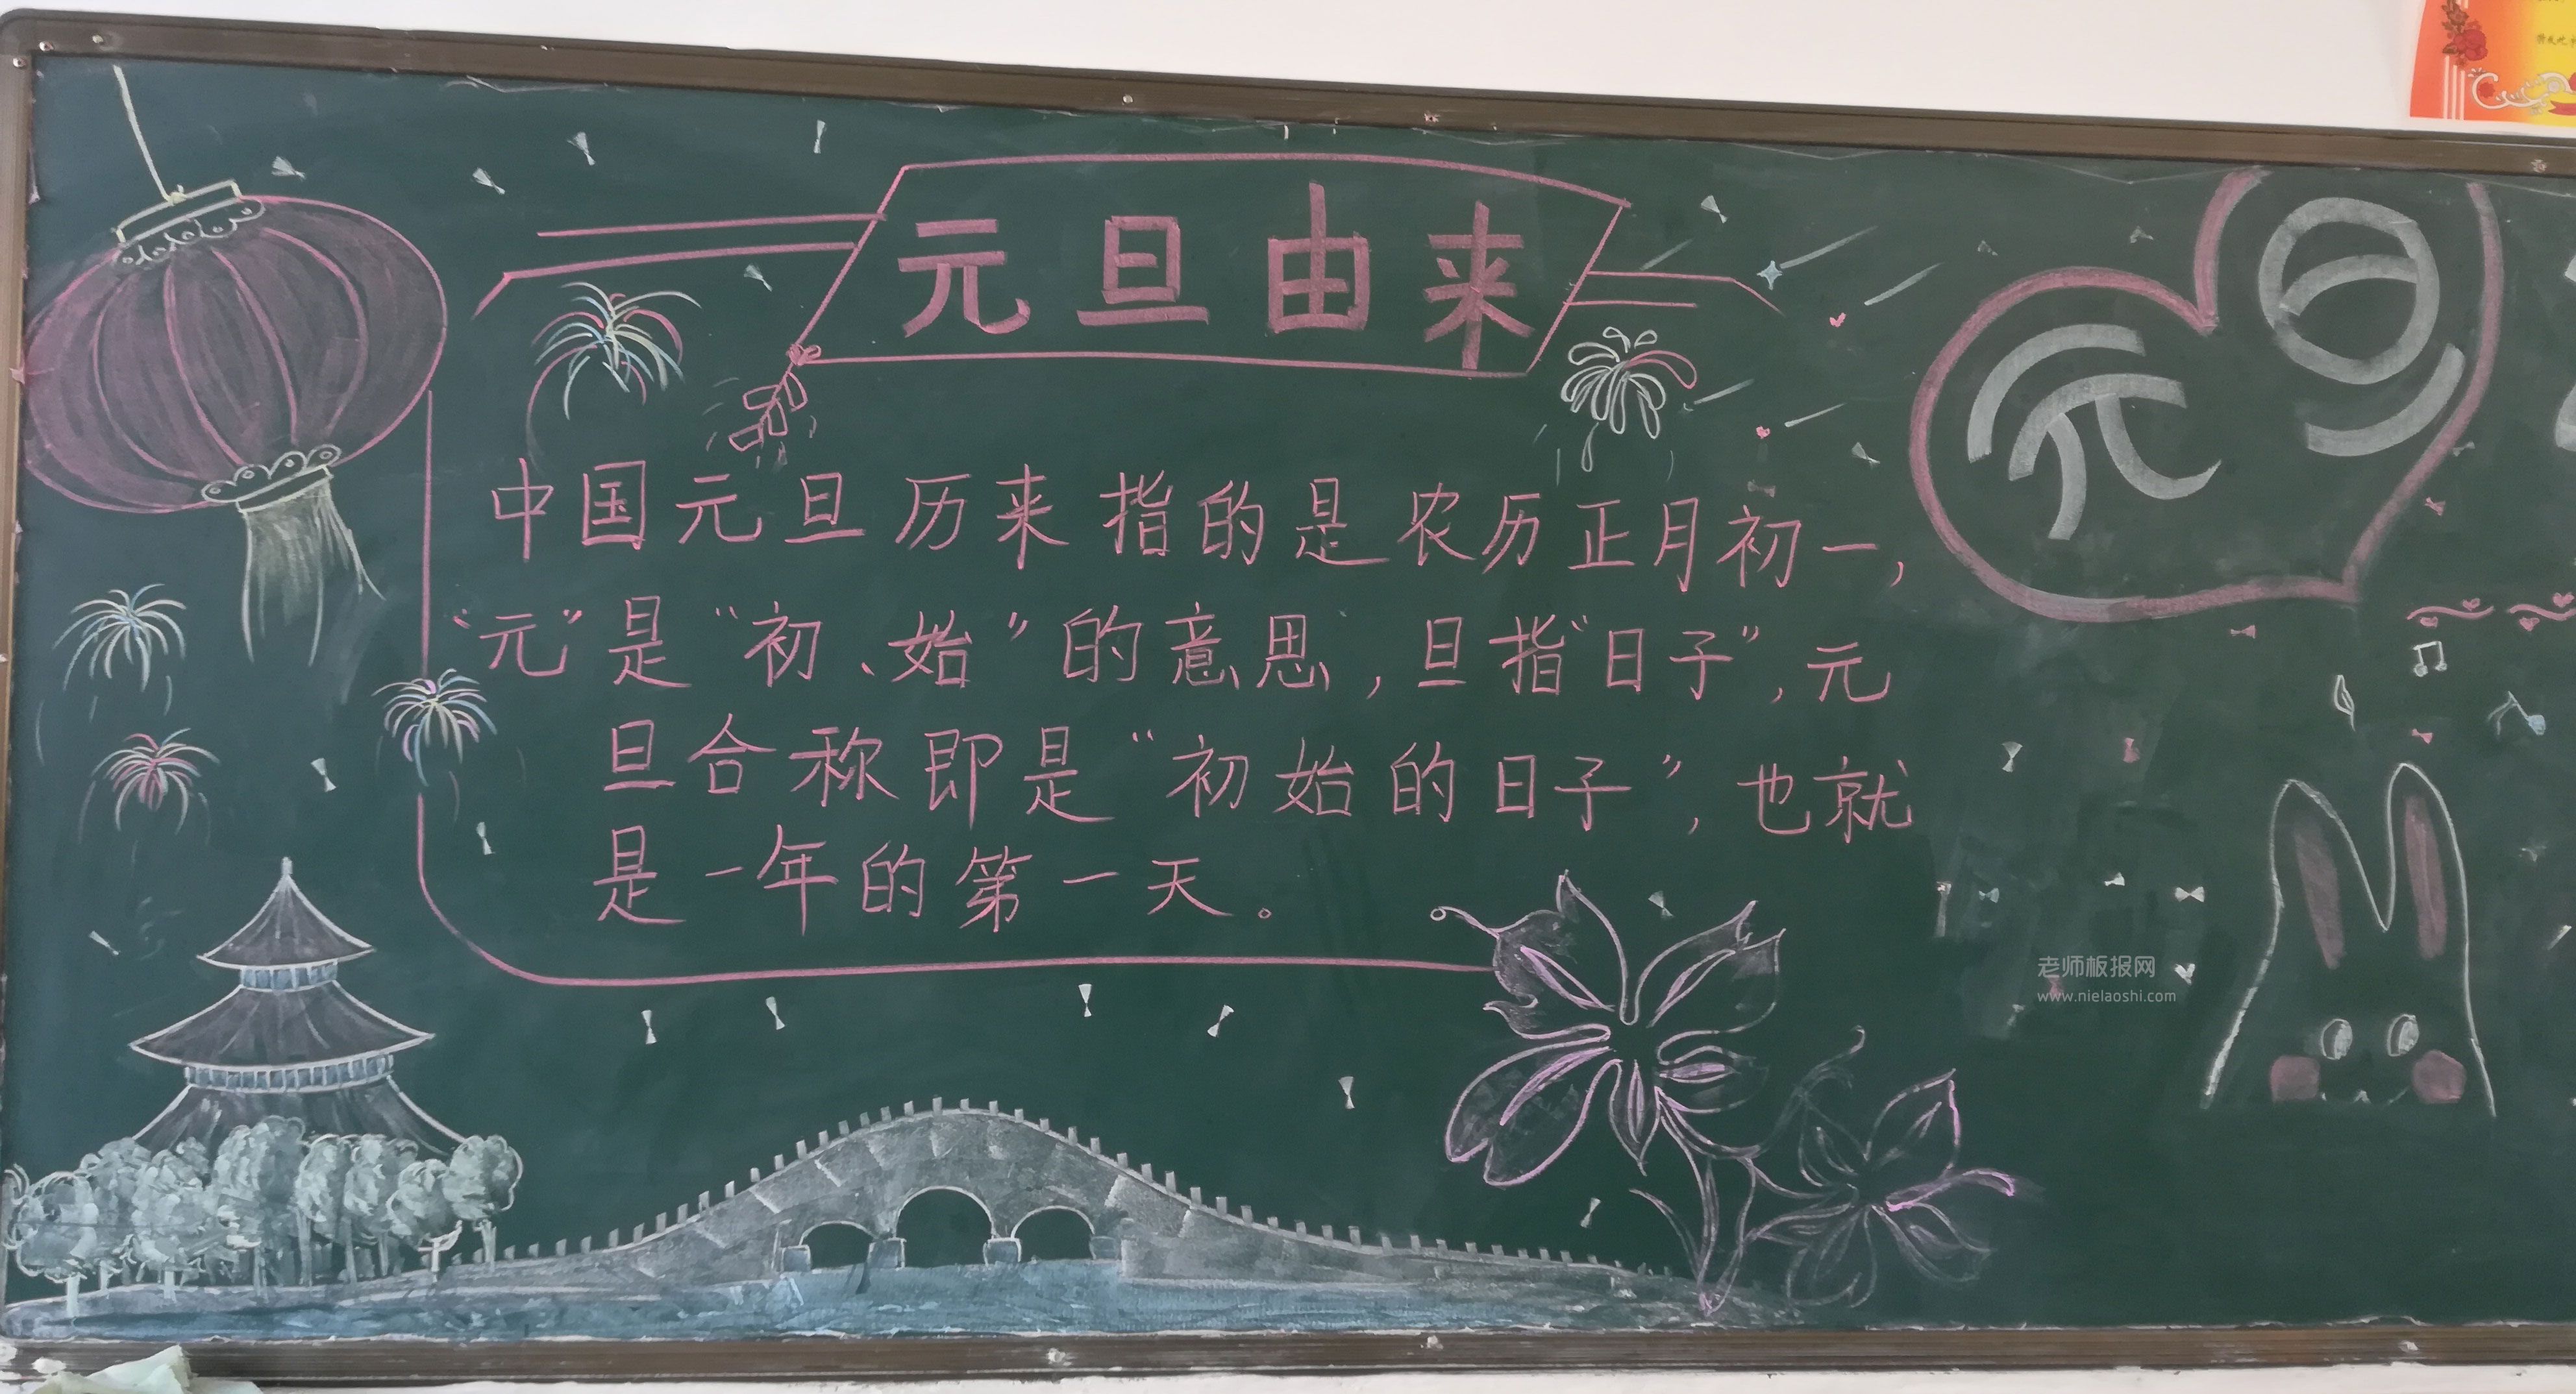 元旦由来
元旦
中国元旦历来指的是农历正月初一，
“元”是“初、始”的意思，旦指“日子”，元
旦合称即是“初始的日子”，也就
是一年的第一天。
老师板报网
www.nielaoshi.com